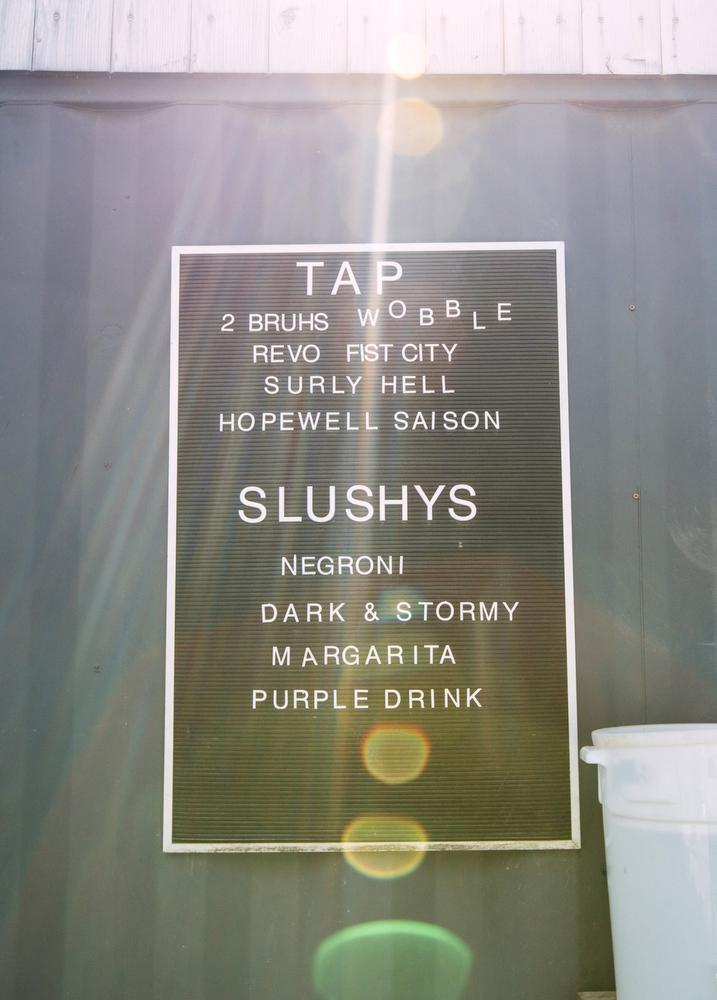 TAP
2 BRUHS WOBBLE
REVO FIST CITY
SURLY HELL
HOPEWELL SAISON
SLUSHYS
NEGRONI
DARK & STORMY
MARGARITA
PURPLE DRINK